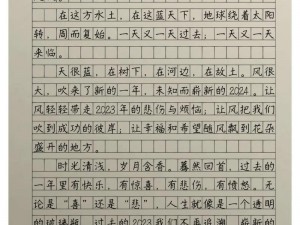 在这方水土，在这蓝天下，地球绕着太阳
转，周而复始。一天又一天过去；一天又一天
来临。
天很蓝，在树下，在河边，在故土。风很
大，吹来了新的一年，未知而崭新的2024。让
风轻轻带走2023年的悲伤与烦恼；让风把我们
吹到成功的彼岸；让幸福和希望随风飘到花朵
盛开的地方。
时光清浅，岁月含香。蓦然回首，过去的
一年里有快乐，有惊喜，有悲伤，有愤怒。无
论是“喜”还是“悲”，人生就像是一个透明
的玻璃瓶，过去的2023我们不再追溯，崭新的